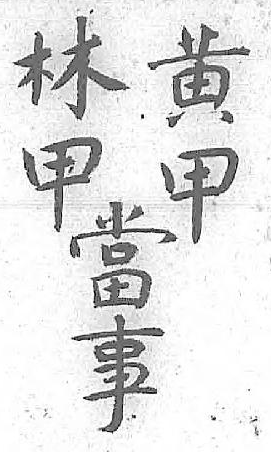 黄甲
林甲
當事